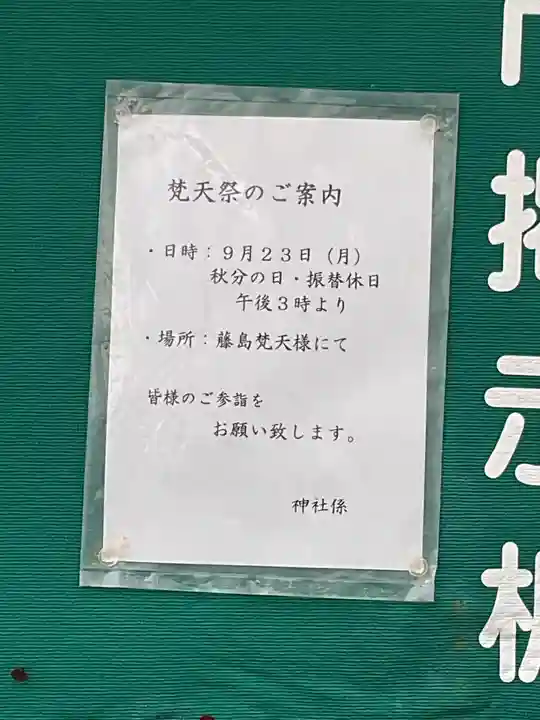 梵天祭のご案内
・日時：９月２３日（月）
秋分の日・振替休日
午後３時より
・場所：藤島梵天様にて
皆様のご参詣を
お願い致します。
神社係
掲示板